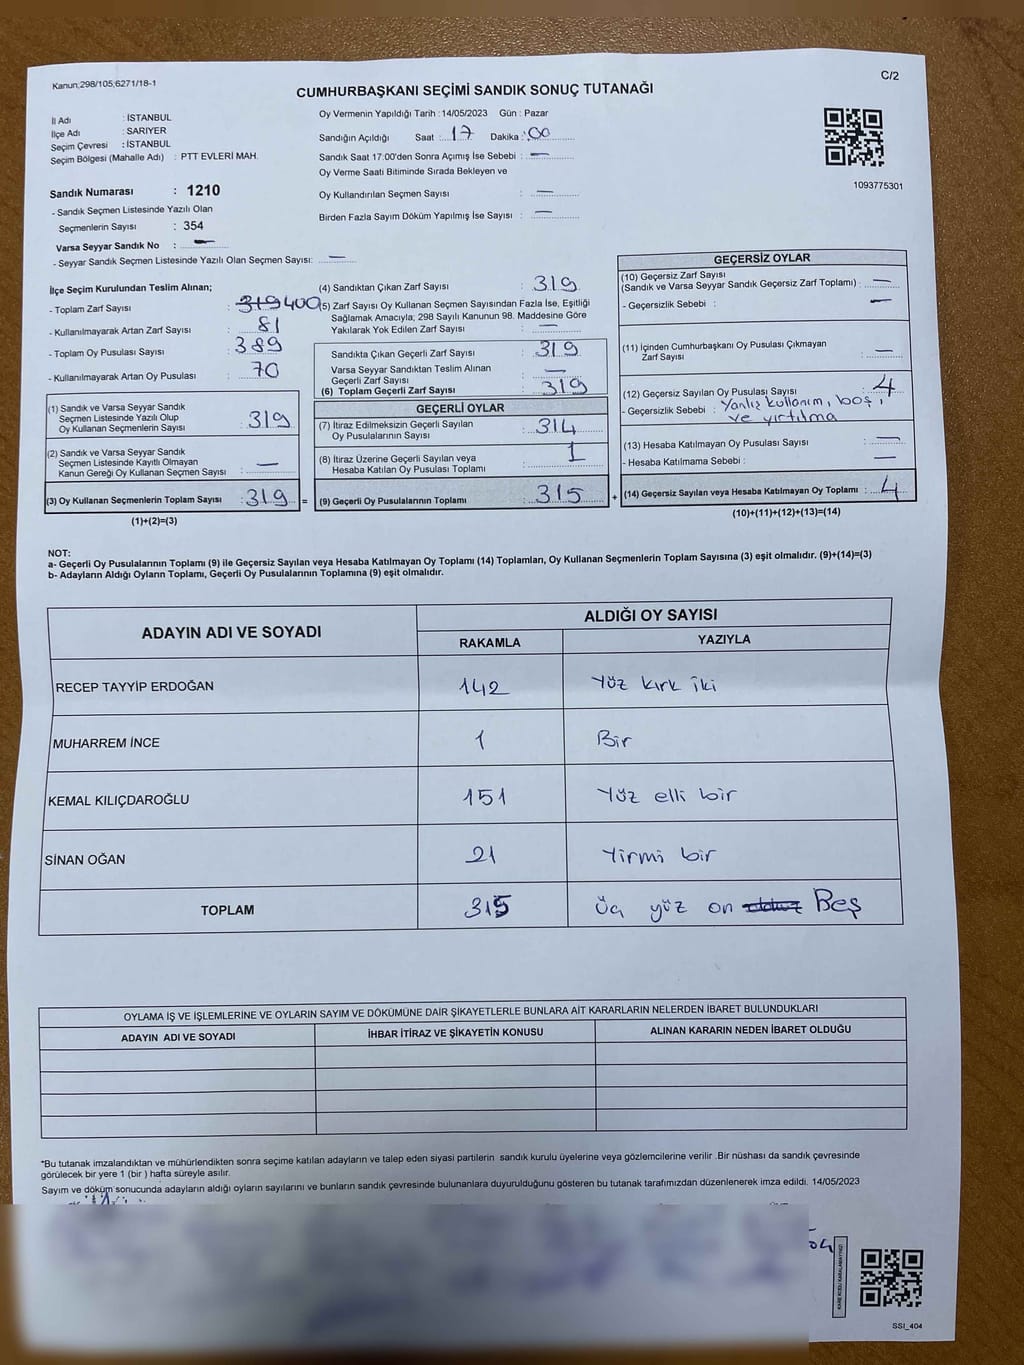 Kanun;298/105;6271/18-1
C/2
CUMHURBAŞKANI SEÇİMİ SANDIK SONUÇ TUTANAĞI
İl Adı : İSTANBUL
İlçe Adı : SARIYER
Seçim Çevresi : İSTANBUL
Seçim Bölgesi (Mahalle Adı) : PTT EVLERİ MAH.
Sandık Numarası : 1210
- Sandık Seçmen Listesinde Yazılı Olan
Seçmenlerin Sayısı : 354
Varsa Seyyar Sandık No : —
- Seyyar Sandık Seçmen Listesinde Yazılı Olan Seçmen Sayısı: —
Oy Vermenin Yapıldığı Tarih : 14/05/2023 Gün : Pazar
Sandığın Açıldığı Saat : 17 Dakika : 00
Sandık Saat 17:00'den Sonra Açımış İse Sebebi : —
Oy Verme Saati Bitiminde Sırada Bekleyen ve
Oy Kullandırılan Seçmen Sayısı : —
Birden Fazla Sayım Döküm Yapılmış İse Sayısı : —
1093775301
İlçe Seçim Kurulundan Teslim Alınan;
- Toplam Zarf Sayısı : 319 400
- Kullanılmayarak Artan Zarf Sayısı : 81
- Toplam Oy Pusulası Sayısı : 389
- Kullanılmayarak Artan Oy Pusulası : 70
(1) Sandık ve Varsa Seyyar Sandık
Seçmen Listesinde Yazılı Olup
Oy Kullanan Seçmenlerin Sayısı : 319
(2) Sandık ve Varsa Seyyar Sandık
Seçmen Listesinde Kayıtlı Olmayan
Kanun Gereği Oy Kullanan Seçmen Sayısı : —
(3) Oy Kullanan Seçmenlerin Toplam Sayısı : 319 =
(1)+(2)=(3)
(4) Sandıktan Çıkan Zarf Sayısı : 319
(5) Zarf Sayısı Oy Kullanan Seçmen Sayısından Fazla İse, Eşitliği
Sağlamak Amacıyla; 298 Sayılı Kanunun 98. Maddesine Göre
Yakılarak Yok Edilen Zarf Sayısı : —
Sandıkta Çıkan Geçerli Zarf Sayısı : 319
Varsa Seyyar Sandıktan Teslim Alınan
Geçerli Zarf Sayısı : —
(6) Toplam Geçerli Zarf Sayısı : 319
GEÇERLİ OYLAR
(7) İtiraz Edilmeksizin Geçerli Sayılan
Oy Pusulalarının Sayısı : 314
(8) İtiraz Üzerine Geçerli Sayılan veya
Hesaba Katılan Oy Pusulası Toplamı : 1
(9) Geçerli Oy Pusulalarının Toplamı : 315 +
GEÇERSİZ OYLAR
(10) Geçersiz Zarf Sayısı
(Sandık ve Varsa Seyyar Sandık Geçersiz Zarf Toplamı) : —
- Geçersizlik Sebebi : —
(11) İçinden Cumhurbaşkanı Oy Pusulası Çıkmayan
Zarf Sayısı : —
(12) Geçersiz Sayılan Oy Pusulası Sayısı : 4
- Geçersizlik Sebebi : Yanlış kullanım, boş,
ve yırtılma
(13) Hesaba Katılmayan Oy Pusulası Sayısı : —
- Hesaba Katılmama Sebebi : —
(14) Geçersiz Sayılan veya Hesaba Katılmayan Oy Toplamı : 4
(10)+(11)+(12)+(13)=(14)
NOT:
a- Geçerli Oy Pusulalarının Toplamı (9) ile Geçersiz Sayılan veya Hesaba Katılmayan Oy Toplamı (14) Toplamları, Oy Kullanan Seçmenlerin Toplam Sayısına (3) eşit olmalıdır. (9)+(14)=(3)
b- Adayların Aldığı Oyların Toplamı, Geçerli Oy Pusulalarının Toplamına (9) eşit olmalıdır.
ADAYIN ADI VE SOYADI
ALDIĞI OY SAYISI
RAKAMLA YAZIYLA
RECEP TAYYİP ERDOĞAN 142 Yüz kırk iki
MUHARREM İNCE 1 Bir
KEMAL KILIÇDAROĞLU 151 Yüz elli bir
SİNAN OĞAN 21 Yirmi bir
TOPLAM 315 Üç yüz on Beş
OYLAMA İŞ VE İŞLEMLERİNE VE OYLARIN SAYIM VE DÖKÜMÜNE DAİR ŞİKAYETLERLE BUNLARA AİT KARARLARIN NELERDEN İBARET BULUNDUKLARI
ADAYIN ADI VE SOYADI İHBAR İTİRAZ VE ŞİKAYETİN KONUSU ALINAN KARARIN NEDEN İBARET OLDUĞU
*Bu tutanak imzalandıktan ve mühürlendikten sonra seçime katılan adayların ve talep eden siyasi partilerin sandık kurulu üyelerine veya gözlemcilerine verilir .Bir nüshası da sandık çevresinde
görülecek bir yere 1 (bir ) hafta süreyle asılır.
Sayım ve döküm sonucunda adayların aldığı oyların sayılarını ve bunların sandık çevresinde bulunanlara duyurulduğunu gösteren bu tutanak tarafımızdan düzenlenerek imza edildi. 14/05/2023
KARE KODU KARALAMAYINIZ!
SSI_404